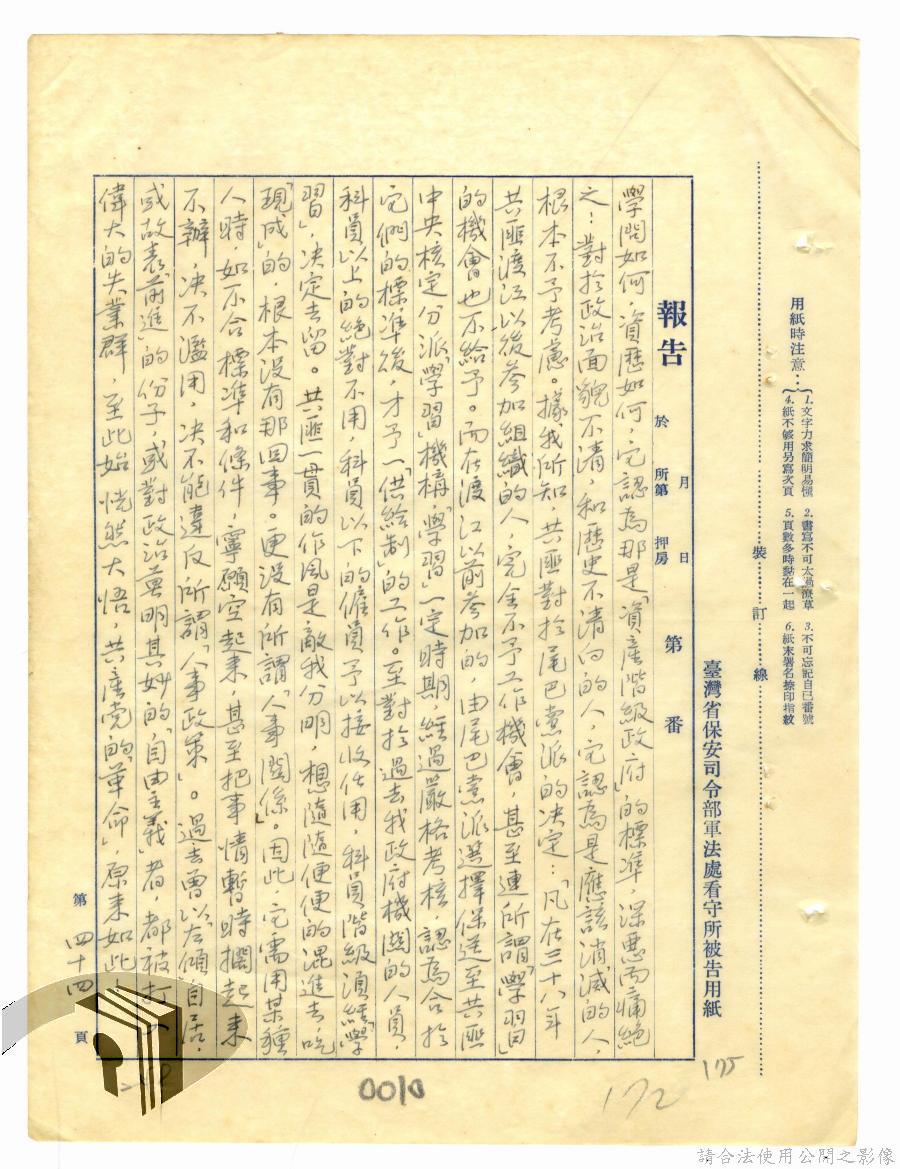 用紙時注意：
1. 文字力求簡明易懂
2. 書寫不可太過潦草
3. 不可忘記自己番號
4. 紙不够用另寫次頁
5. 頁數多時黏在一起
6. 紙末署名捺印指紋
裝訂線
臺灣省保安司令部軍法處看守所被告用紙
報告
於
月
日
所第
押房
第
番
學問如何，資歷如何，它認為那是「資產階級政府」的標準，深惡而痛絕
之；對於政治面貌不清，和歷史不清白的人，它認為是應該消滅的人，
根本不予考慮。據我所知，共匪對於尾巴黨派的決定：「凡在三十八年
共匪渡江以後參加組織的人，完全不予工作機會，甚至連所謂「學習」
的機會也不給予。而在渡江以前參加的，由尾巴黨派選擇保送至共匪
中央核定分派「學習」機構，「學習」一定時期，經過嚴格考核，認為合於
它們的標準後，才予一「供給制」的工作。至對於過去我政府機關的人員，
科員以上的絕對不用，科員以下的僱員予以接收任用，科員階級須經「學
習」，決定去留。共匪一貫的作風是敵我分明，想隨隨便便的混進去吃
「現成」的，根本沒有那回事。更沒有所謂「人事關係」。因此，它需用某種
人時如不合標準和條件，寧願空起來，甚至把事情暫時擱起來
不辦，決不濫用，決不能違反所謂「人事政策」。過去曾以「左傾自居，
或故表「前進」的份子，或對政治莫明其妙的「自由主義」者，都被打入
偉大的失業群，至此始恍然大悟，共產党的「革命」，原來如此
第四十四頁
0010
172
175
請合法使用公開之影像